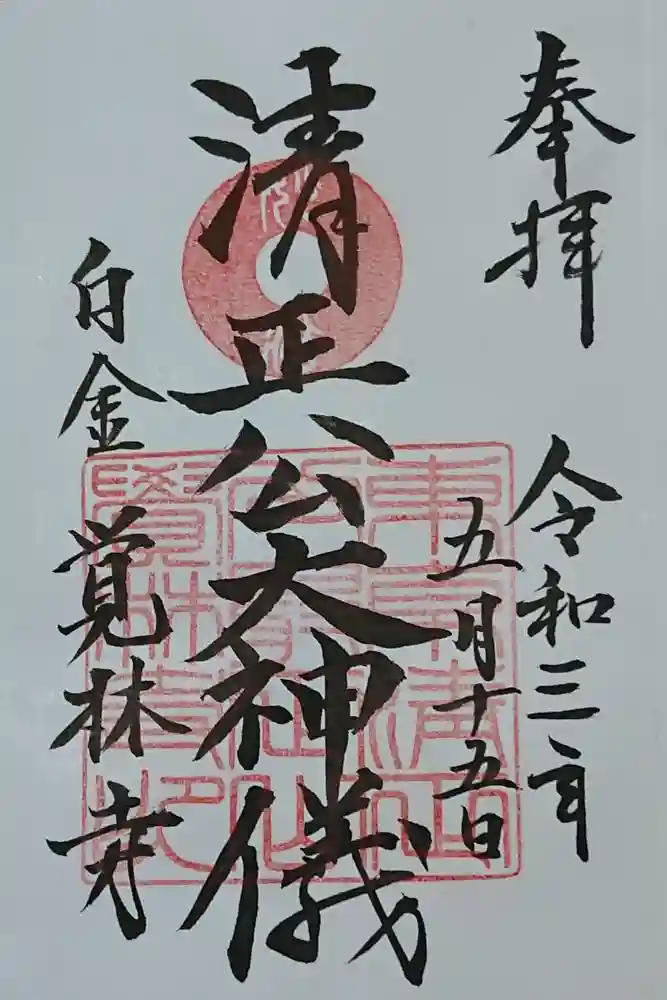 奉拝
令和三年
五月十五日
清正公大神儀
白金
覚林寺